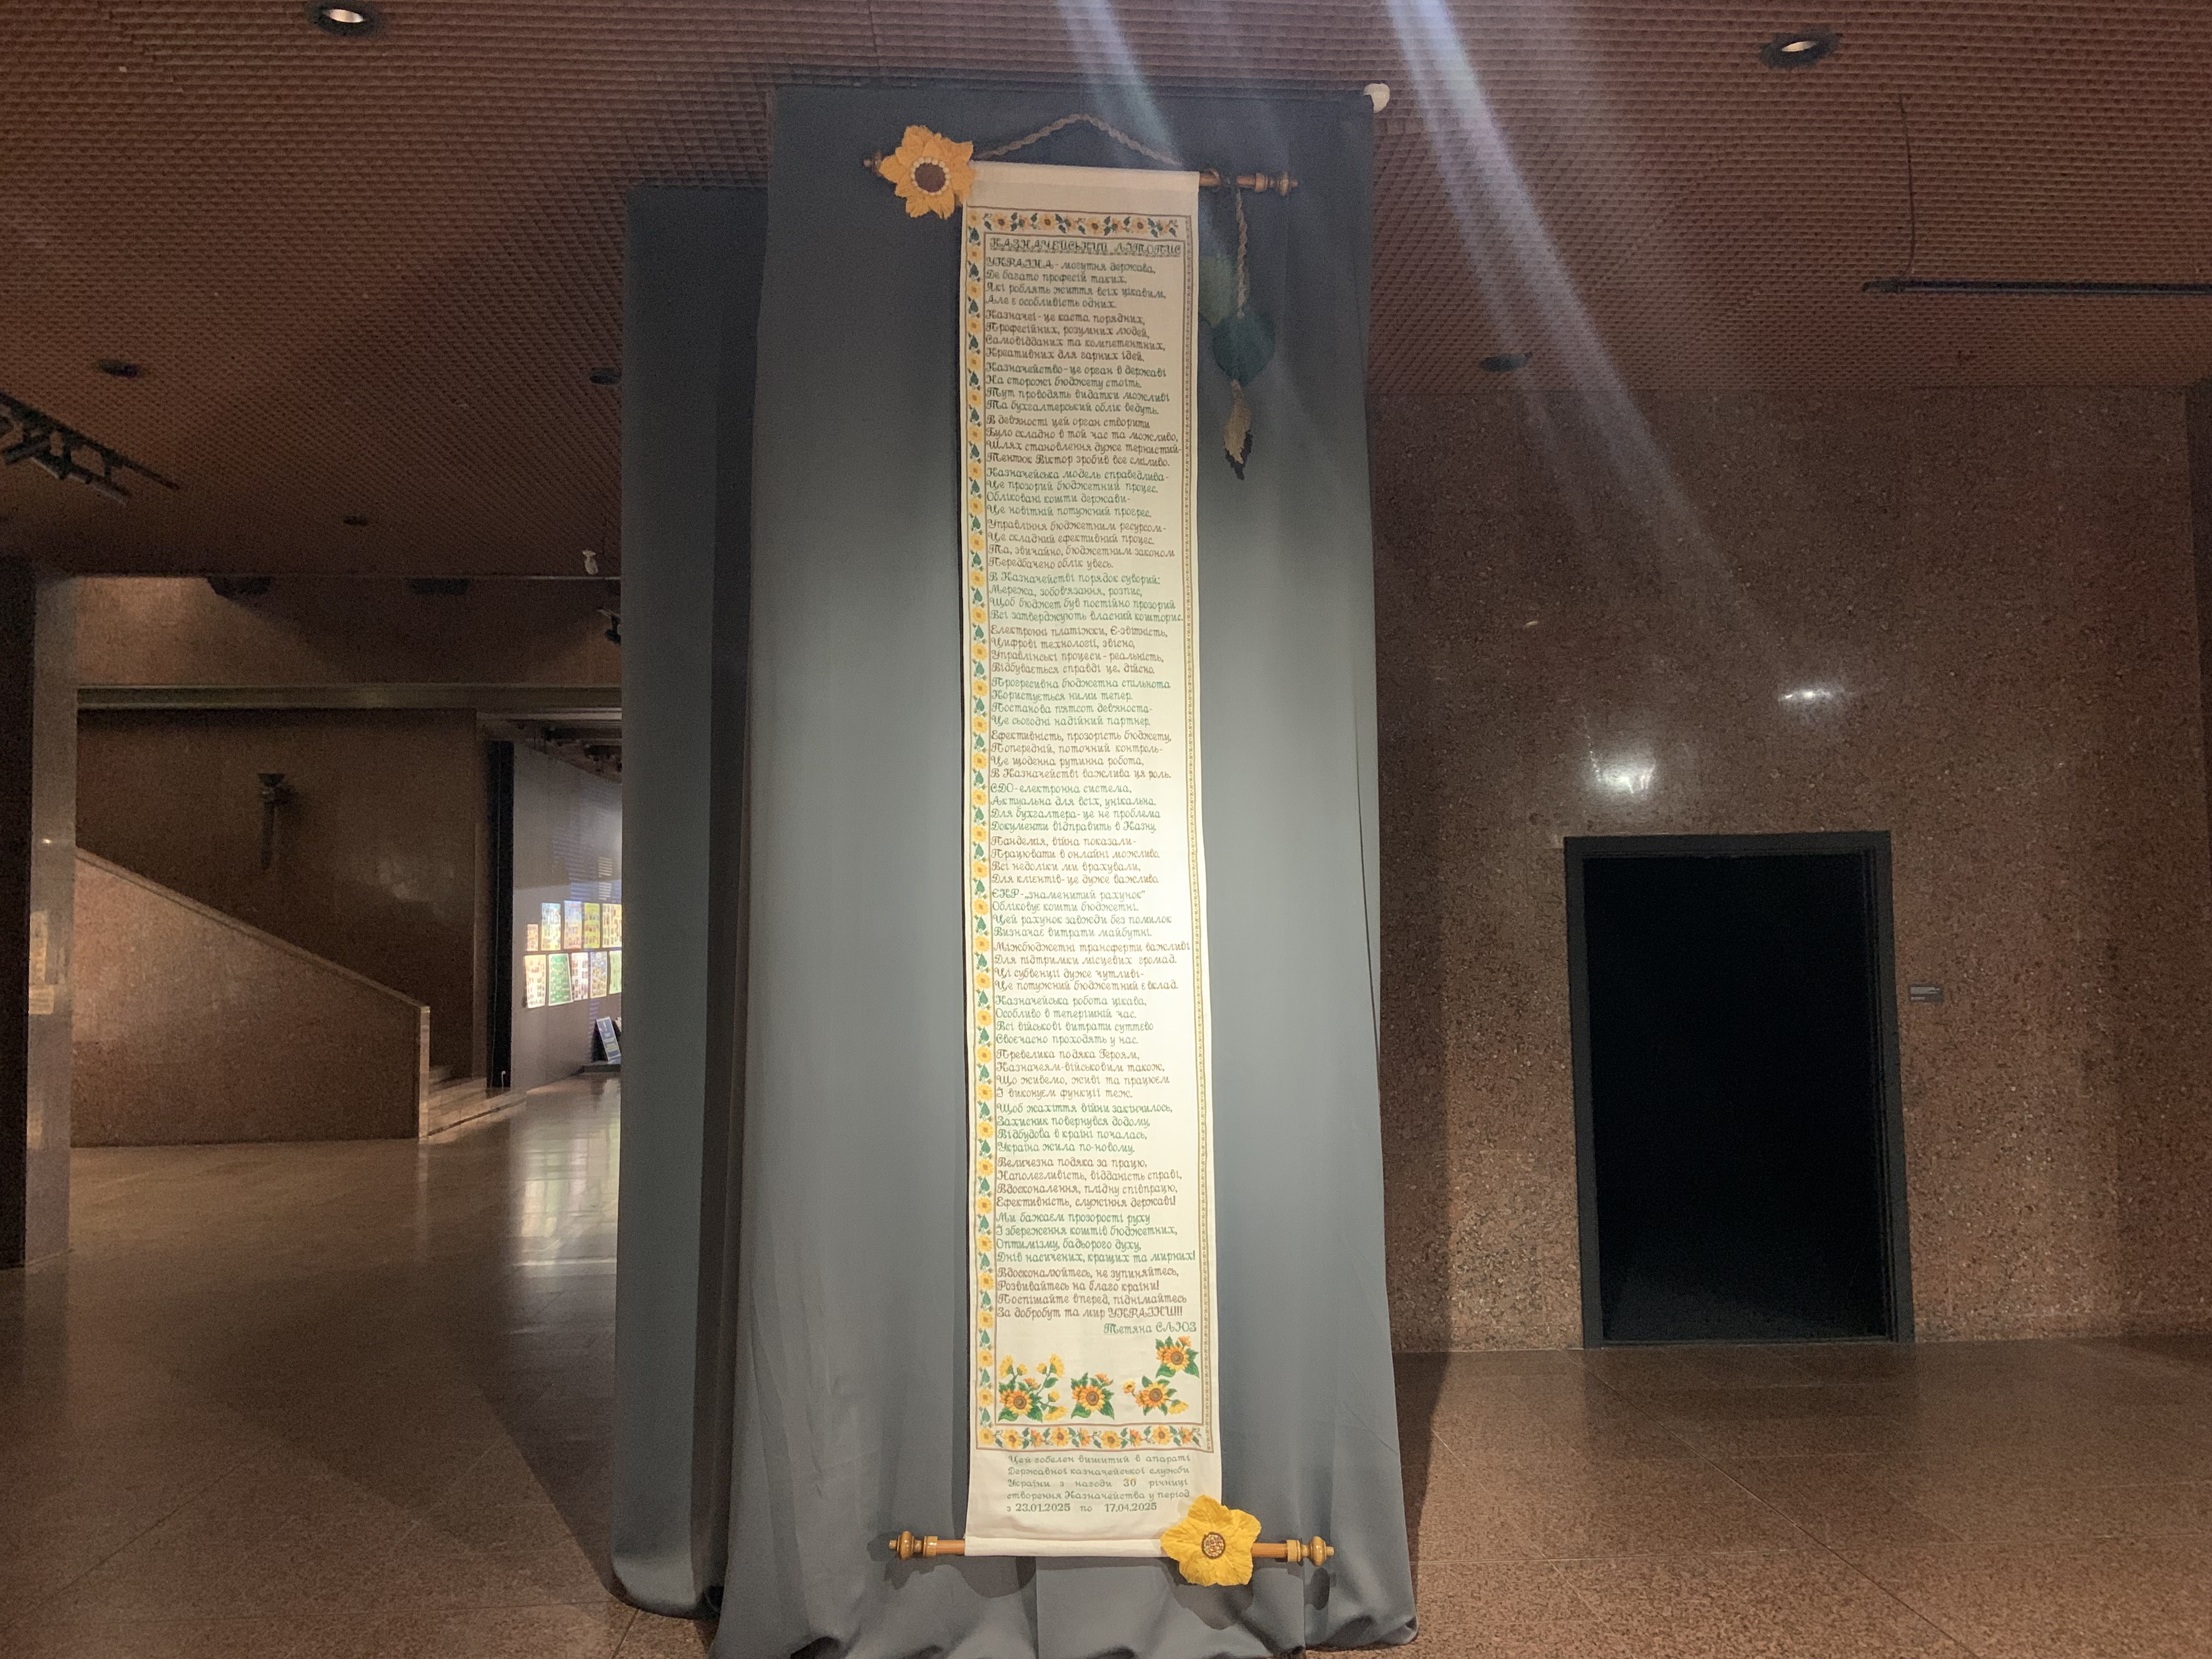 КАЗНАЧЕЙСЬКИЙ ЛІТОПИС
УКРАЇНА - могутня держава,
Де багато професій таких,
Які роблять життя всіх цікавим,
Але є особливість одних.
Казначеї - це каста порядних,
Професійних, розумних людей,
Самовідданих та компетентних,
Креативних для гарних ідей.
Казначейство - це орган в державі
На сторожі бюджету стоїть.
Тут проводять видатки можливі
Та бухгалтерський облік ведуть.
В дев'яності цей орган створити
Було складно в той час та можливо,
Шлях становлення дуже тернистий-
Тентюк Віктор зробив все сміливо.
Казначейська модель справедлива-
Це прозорий бюджетний процес.
Обліковані кошти держави-
Це новітній потужний прогрес.
Управління бюджетним ресурсом-
Це складний ефективний процес.
Та, звичайно, бюджетним законом
Передбачено облік увесь.
В Казначействі порядок суворий:
Мережа, зобов'язання, розпис,
Щоб бюджет був постійно прозорий
Всі затверджують власний кошторис.
Електронні платіжки, Є-звітність,
Цифрові технології, звісно,
Управлінські процеси - реальність,
Відбувається справді це, дійсно.
Прогресивна бюджетна спільнота
Користується ними тепер.
Постанова п'ятсот дев'яноста-
Це сьогодні надійний партнер.
Ефективність, прозорість бюджету,
Попередній, поточний контроль-
Це щоденна рутинна робота,
В Казначействі важлива ця роль.
СДО - електронна система,
Актуальна для всіх, унікальна.
Для бухгалтера - це не проблема
Документи відправить в Казну.
Пандемія, війна показали-
Працювати в онлайні можливо.
Всі недоліки ми врахували,
Для клієнтів - це дуже важливо.
ЄКР - „знаменитий рахунок"
Обліковує кошти бюджетні.
Цей рахунок завжди без помилок
Визначає витрати майбутні.
Міжбюджетні трансферти важливі
Для підтримки місцевих громад.
Ці субвенції дуже чутливі-
Це потужний бюджетний є вклад.
Казначейська робота цікава,
Особливо в теперішній час.
Всі військові витрати суттєво
Своєчасно проходять у нас.
Превелика подяка Героям,
Казначеям-військовим також,
Що живемо, живі та працюєм
І виконуєм функції теж.
Щоб жахіття війни закінчилось,
Захисник повернувся додому,
Відбудова в країні почалась,
Україна жила по-новому.
Величезна подяка за працю,
Наполегливість, відданість справі,
Вдосконалення, плідну співпрацю,
Ефективність, служіння державі!
Ми бажаєм прозорості руху
І збереження коштів бюджетних,
Оптимізму, бадьорого духу,
Днів насичених, кращих та мирних!
Вдосконалюйтесь, не зупиняйтесь,
Розвивайтесь на благо країни!
Поспішайте вперед, піднімайтесь
За добробут та мир УКРАЇНИ!!!
Тетяна СЛЮЗ
Цей гобелен вишитий в апараті
Державної казначейської служби
України з нагоди 30 річниці
створення Казначейства у період
з 23.01.2025 по 17.04.2025